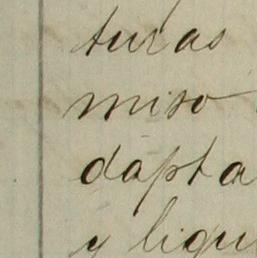 turas
miso
dapta
y liqui